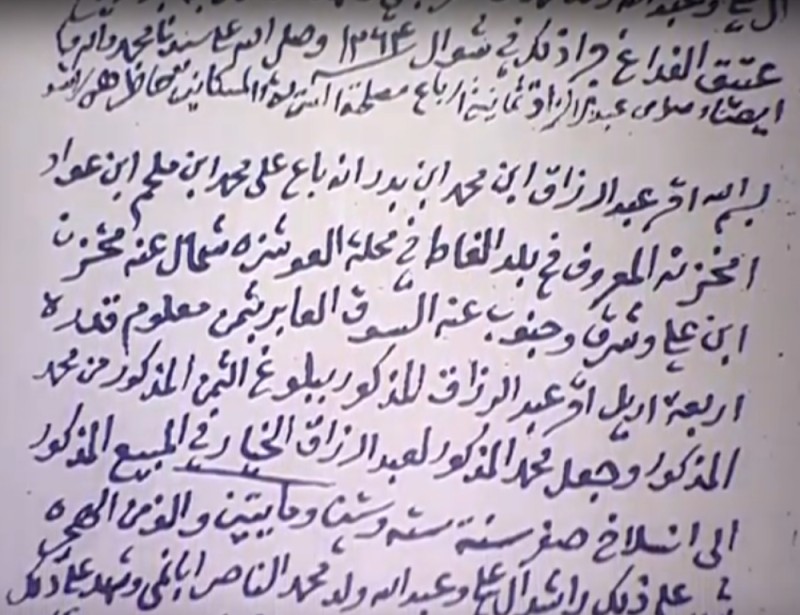 عتيق الفداغ في شوال ١٢٦٤ وصلى الله على سيدنا محمد
ايضا عبد الرزاق ثمانية ارباع
بسم الله اقر عبد الرزاق ابن محمد ابن بدر انه باع على محمد ابن ملحم ابن عواد
المخزنه المعروف في بلد الغاط في محلة العوشزه شمال عنه مخزن
ابن علي وشرق وجنوب عنه السوق العابر بثمن معلوم قدره
اربعة اريل اقر عبد الرزاق المذكور ببلوغ الثمن المذكور من محمد
المذكور وجعل محمد المذكور لعبد الرزاق الخيار في المبيع المذكور
الى انسلاخ صفر سنة سته ومايتين والف من الهجره
على ذلك راشد آل علي وعبد الله ولد محمد الناصر وشهد على ذلك